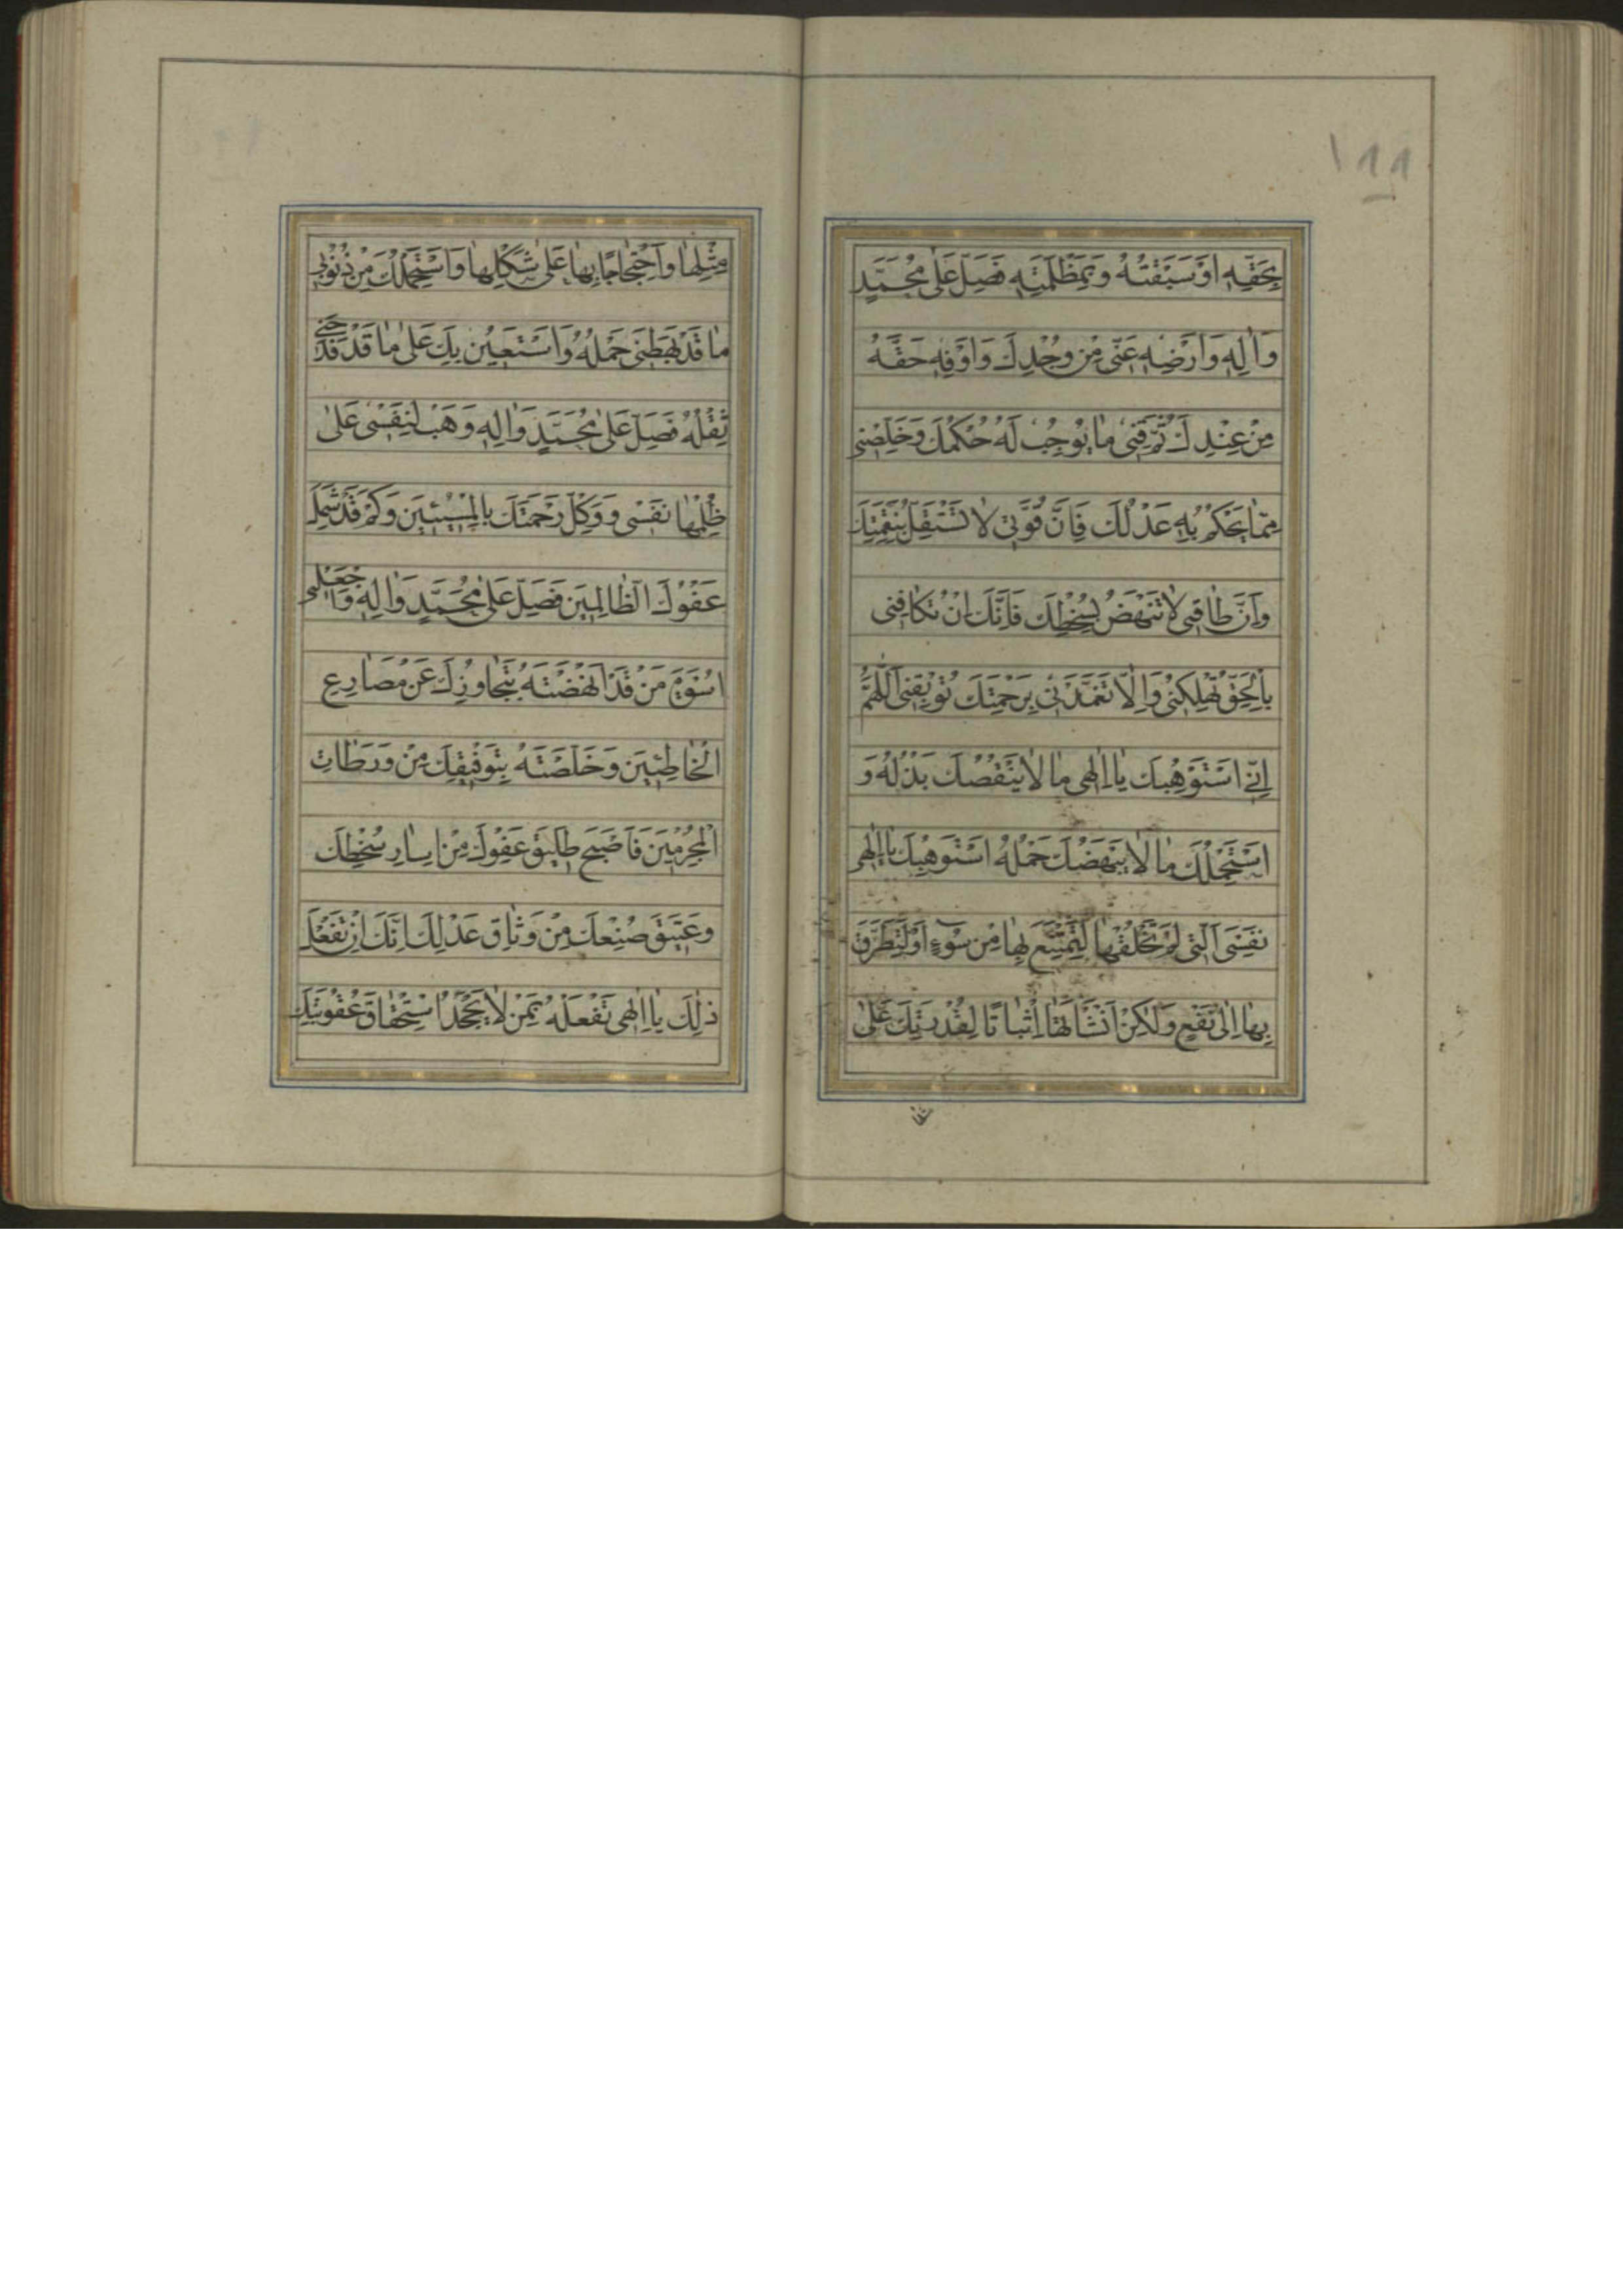 ١٩٩
بِحَقِّهِ اَوْ سَبَقْتُهُ وَبِمَظْلَمَتِهِ فَصَلِّ عَلٰى مُحَمَّدٍ
وَاٰلِهِ وَاَرْضِهِ عَنّى مِنْ وُجْدِكَ وَاَوْفِهِ حَقَّهُ
مِنْ عِنْدِكَ ثُمَّ قِنى مٰا يُوجِبُ لَهُ حُكْمُكَ وَخَلِّصْنى
مِمّٰا يَحْكُمُ بِهِ عَدْلُكَ فَاِنَّ قُوَّتى لاٰ تَسْتَقِلُّ بِنَقِمَتِكَ
وَاِنَّ طٰاقَتى لاٰ تَنْهَضُ بِسُخْطِكَ فَاِنَّكَ اِنْ تُكٰافِنى
بِالْحَقِّ تُهْلِكْنى وَاِلّاٰ تَغَمَّدَنى بِرَحْمَتِكَ تُوبِقْنى اَللّٰهُمَّ
اِنّى اَسْتَوْهِبُكَ يٰا اِلٰهى مٰا لاٰ يَنْقُصُكَ بَذْلُهُ وَ
اَسْتَحْمِلُكَ مٰا لاٰ يَبْهَضُكَ حَمْلُهُ اَسْتَوْهِبُكَ يٰا اِلٰهى
نَفْسِىَ الَّتى لَمْ تَخْلُقْهٰا لِتَمْتَنِعَ بِهٰا مِنْ سُوۤءٍ اَوْ لِتَطَرَّقَ
بِهٰا اِلٰى نَفْعٍ وَلٰكِنْ اَنْشَأْتَهٰا اِثْبٰاتًا لِقُدْرَتِكَ عَلٰى
مِثْلِهٰا وَاحْتِجٰاجًا بِهٰا عَلٰى شَكْلِهٰا وَاَسْتَحْمِلُكَ مِنْ ذُنُوبى
مٰا قَدْ بَهَظَنى حَمْلُهُ وَاَسْتَعينُ بِكَ عَلٰى مٰا قَدْ فَدَحَنى
ثِقْلُهُ فَصَلِّ عَلٰى مُحَمَّدٍ وَاٰلِهِ وَهَبْ لِنَفْسى عَلٰى
ظُلْمِهٰا نَفْسى وَوَكِّلْ رَحْمَتَكَ بِالْمُسيئينَ وَكَمْ قَدْ شَمِلَ
عَفْوُكَ الظّٰالِمينَ فَصَلِّ عَلٰى مُحَمَّدٍ وَاٰلِهِ وَاجْعَلْنى
اُسْوَةَ مَنْ قَدْ اَنْهَضْتَهُ بِتَجٰاوُزِكَ عَنْ مَصٰارِعِ
الْخٰاطِئينَ وَخَلَّصْتَهُ بِتَوْفيقِكَ مِنْ وَرَطٰاتِ
الْمُجْرِمينَ فَاَصْبَحَ طَليقَ عَفْوِكَ مِنْ اِسٰارِ سُخْطِكَ
وَعَتيقَ صُنْعِكَ مِنْ وَثٰاقِ عَدْلِكَ اِنَّكَ اِنْ تَفْعَلْ
ذٰلِكَ يٰا اِلٰهى تَفْعَلْهُ بِمَنْ لاٰ يَجْحَدُ اسْتِحْقٰاقَ عُقُوبَتِكَ